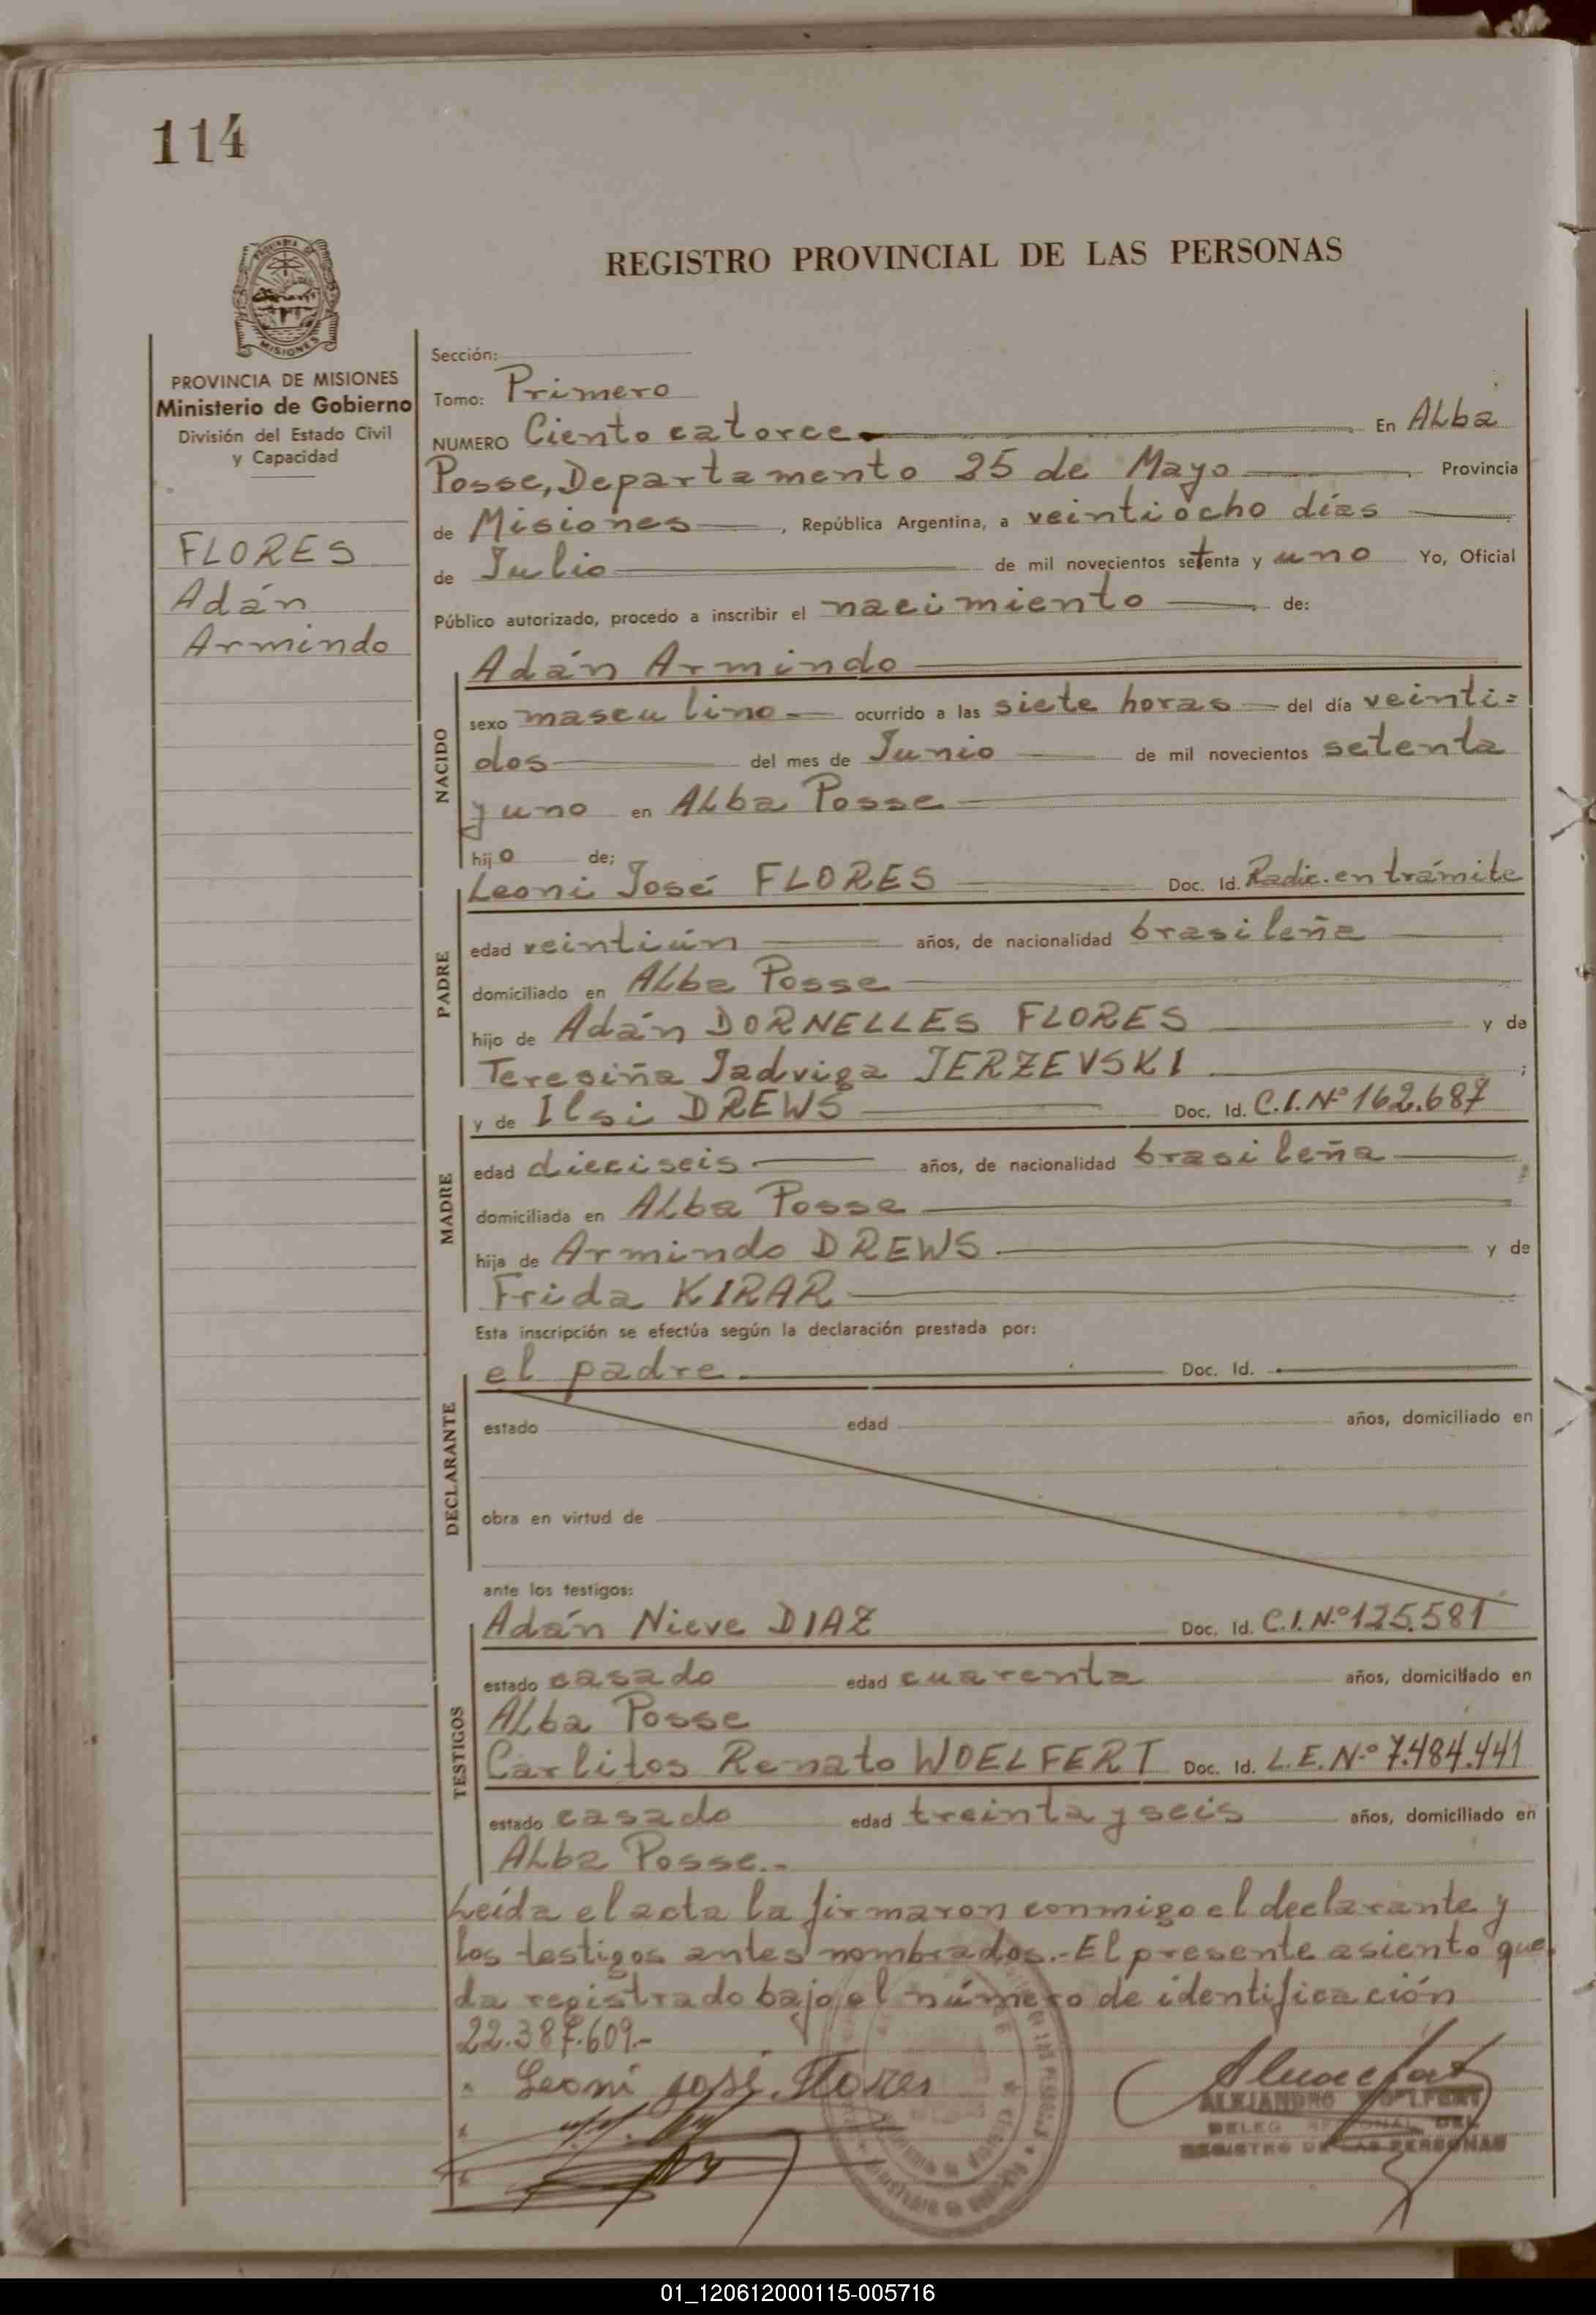 114
PROVINCIA DE
MISIONES
REGISTRO PROVINCIAL DE LAS PERSONAS
PROVINCIA DE MISIONES
Ministerio de Gobierno
División del Estado Civil
y Capacidad
FLORES
Adán
Armindo
Sección:
Tomo: Primero
NUMERO Ciento catorce En Alba
Posse, Departamento 25 de Mayo Provincia
de Misiones, República Argentina, a veintiocho días
de Julio de mil novecientos setenta y uno Yo, Oficial
Público autorizado, procedo a inscribir el nacimiento de:
NACIDO
Adán Armindo
sexo masculino ocurrido a las siete horas del día veinti=
dos del mes de Junio de mil novecientos setenta
y uno en Alba Posse
hijo de;
PADRE
Leoni José FLORES Doc. Id. Radic. en trámite
edad veintiún años, de nacionalidad brasileña
domiciliado en Alba Posse
hijo de Adán DORNELLES FLORES y de
Teresiña Jadviga JERZEVSKI ;
MADRE
y de Ilsi DREWS Doc. Id. C.I.Nº 162.687
edad dieciseis años, de nacionalidad brasileña
domiciliada en Alba Posse
hija de Armindo DREWS y de
Frida KIRAR
Esta inscripción se efectúa según la declaración prestada por:
DECLARANTE
el padre Doc. Id.
estado edad años, domiciliado en
obra en virtud de
ante los testigos:
TESTIGOS
Adán Nieve DIAZ Doc. Id. C.I.Nº 125.581
estado casado edad cuarenta años, domiciliado en
Alba Posse
Carlitos Renato WOELFERT Doc. Id. L.E.Nº 7.484.441
estado casado edad treinta y seis años, domiciliado en
Alba Posse.-
Leída el acta la firmaron conmigo el declarante y
los testigos antes nombrados.- El presente asiento que
da registrado bajo el número de identificación
22.387.609.-
Leoni José Flores
ALEJANDRO WOELFERT
DELEG. REGIONAL DEL
REGISTRO DE LAS PERSONAS
01_120612000115-005716